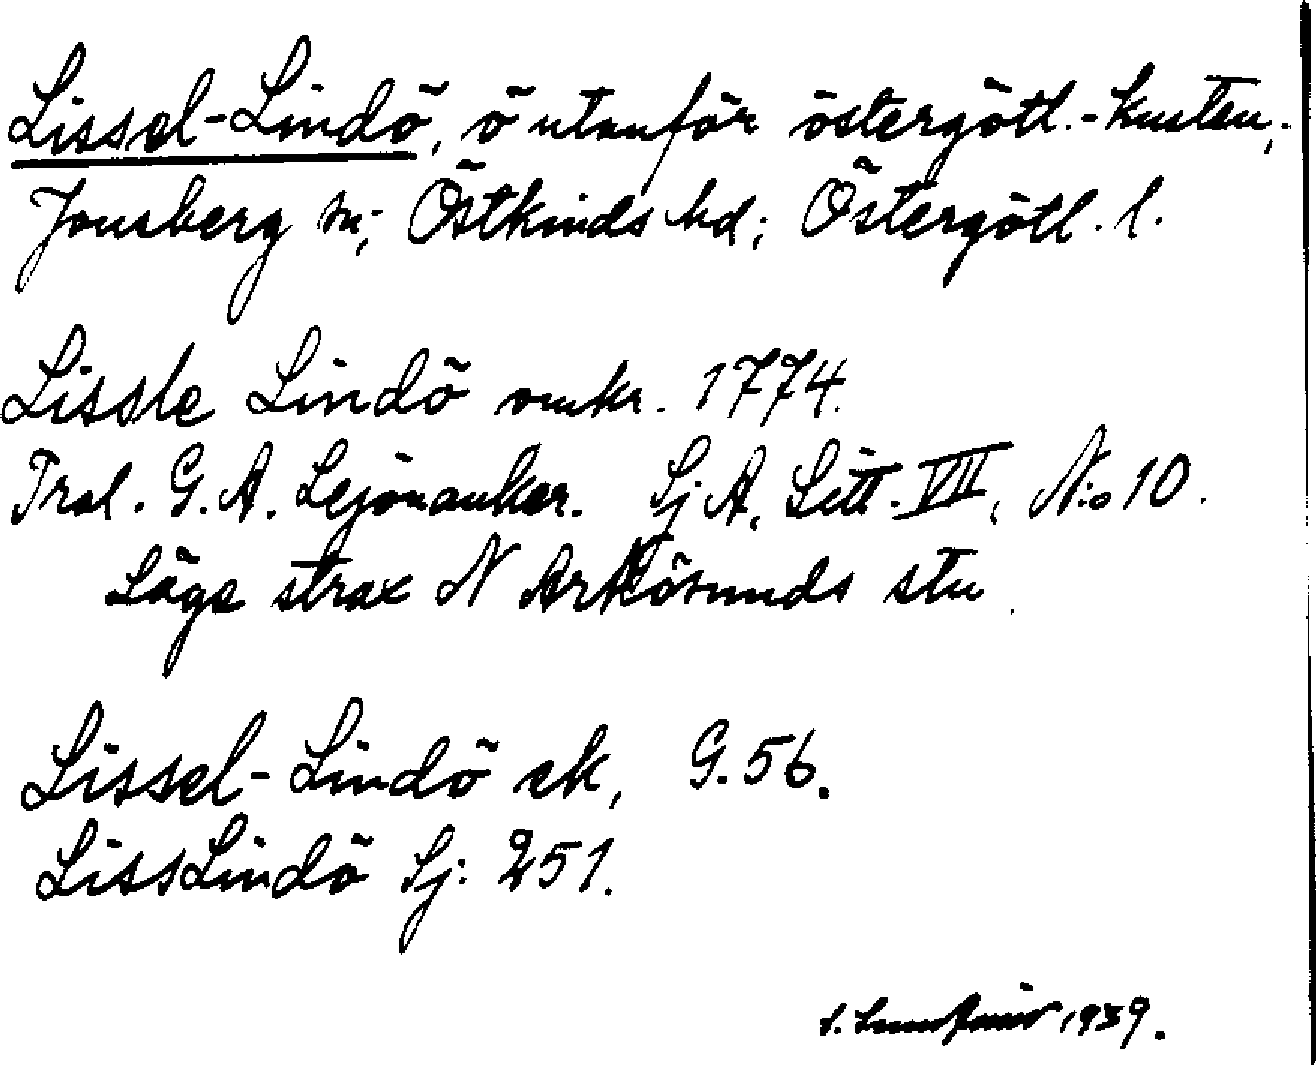 Lissel-Lindö, ö utanför östergötl.-kusten,
Jonsberg sn; Östkinds hd; Östergötl. l.
Lissle Lindö omkr. 1774.
Tral. G. A. Lejonanker. Sj A, Litt. VII, N:o 10.
Läge strax N Arkösunds stn.
Lissel-Lindö ek, G. 56.
LissLindö Sj: 251.
1939.